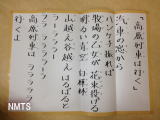 「高原列車は行く」
汽車の窓から
ハンケチ振れば
牧場の乙女が 花束投げる
明るい青空 白樺林
山越え谷越え はるばると
ラララララ ラララララララ
高原列車は ラララララ
行くよ
NMTS